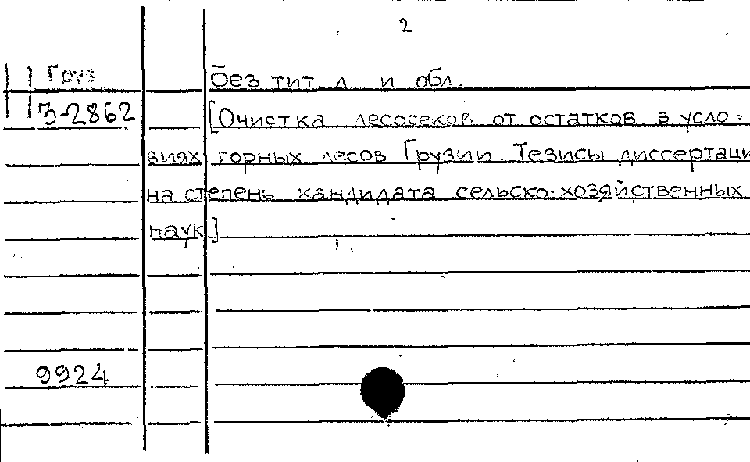 2
Груз без тит л и обл.
3-2862 [Очистка лесосеков от остатков в усло-
виях горных лесов Грузии Тезисы диссертаци
на степень кандидата сельско-хозяйственных
наук]
9924